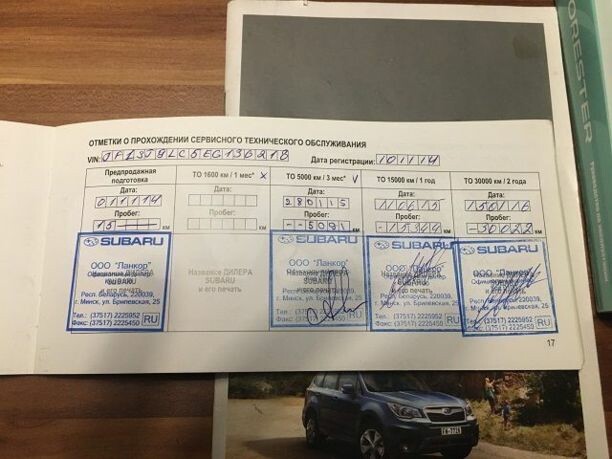 FORESTER
ОТМЕТКИ О ПРОХОЖДЕНИИ СЕРВИСНОГО ТЕХНИЧЕСКОГО ОБСЛУЖИВАНИЯ
VIN: JF1SJ9LC5EG136218 Дата регистрации: 101114
Предпродажная подготовка
ТО 1600 км / 1 мес* x
ТО 5000 км / 3 мес* v
ТО 15000 км / 1 год
ТО 30000 км / 2 года
Дата: Дата: Дата: Дата: Дата:
011114 280115 110615 150116
Пробег: Пробег: Пробег: Пробег: Пробег:
15 км км --5091 км -15304 км -30022 км
SUBARU
ООО "Ланкор"
Официальный дилер
и его печать
Респ. Беларусь, 220039,
г. Минск, ул. Брилевская, 25
Тел.: (37517) 2225952
Факс: (37517) 2225450 RU
Название ДИЛЕРА
SUBARU
и его печать
SUBARU
ООО "Ланкор"
Название ДИЛЕРА
и его печать
Респ. Беларусь, 220039,
г. Минск, ул. Брилевская, 25
RU
SUBARU
ООО "Ланкор"
Респ. Беларусь, 220039,
г. Минск, ул. Брилевская, 25
Тел.: (37517) 2225952
Факс: (37517) 2225450 RU
SUBARU
ООО "Ланкор"
Респ. Беларусь, 220039,
г. Минск, ул. Брилевская, 25
Тел.: (37517) 2225952
Факс: (37517) 2225450 RU
17